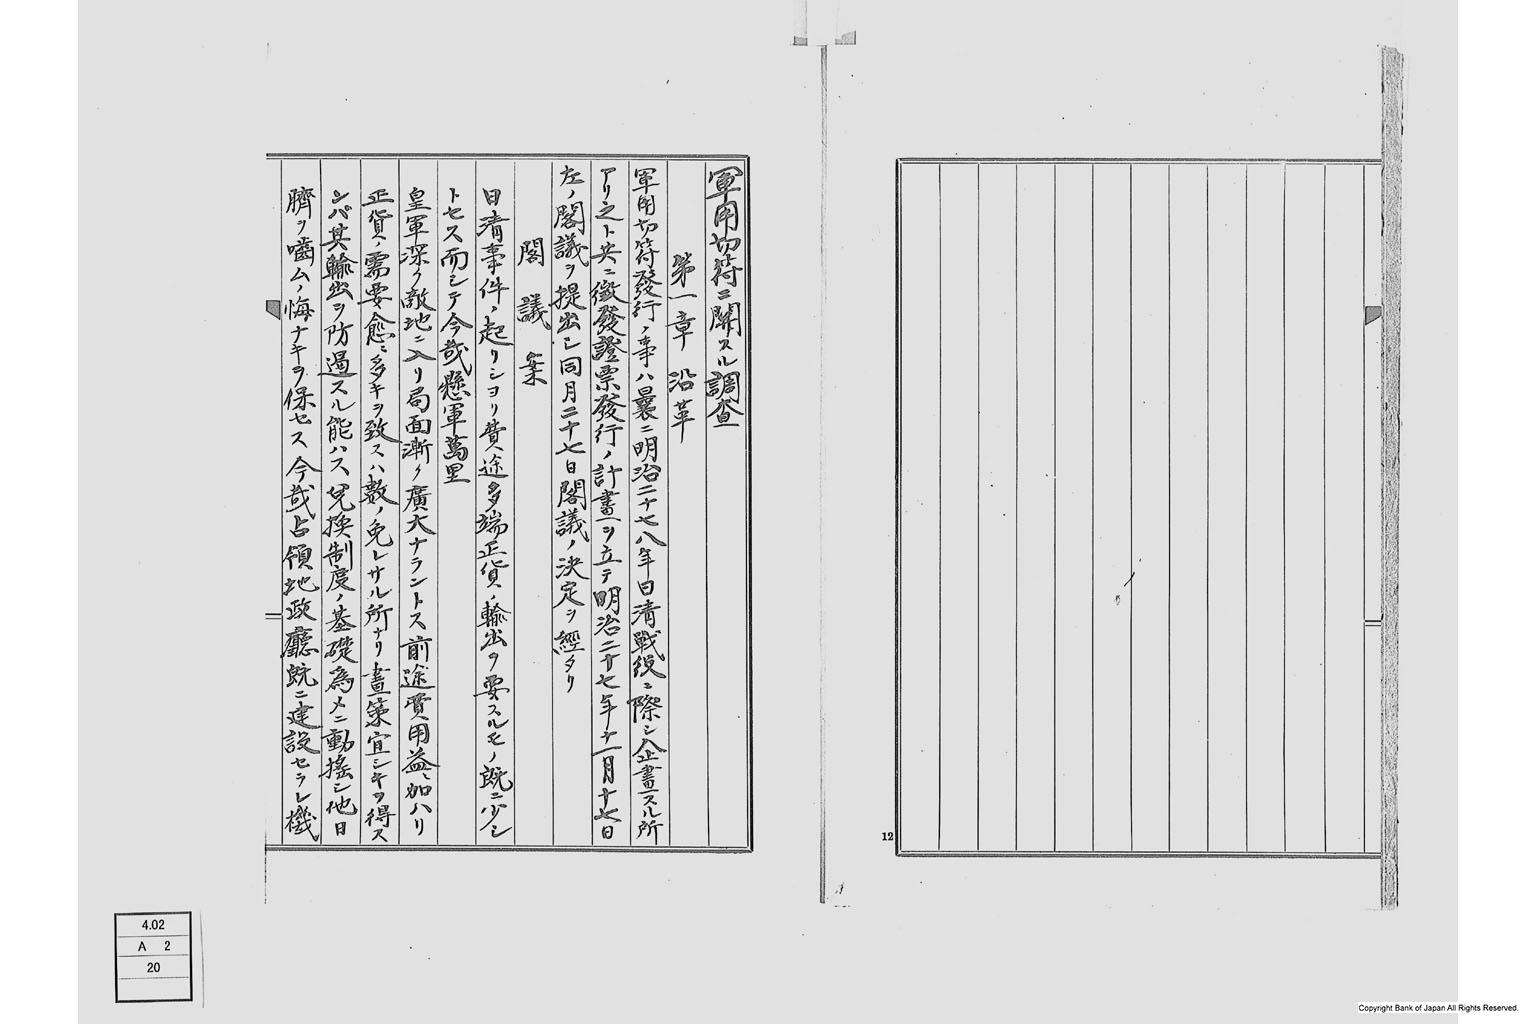 軍用切符ニ關スル調査
第一章 沿革
軍用切符發行ノ事ハ曩ニ明治二十七八年日清戰役ニ際シ企畫スル所
アリ之ト共ニ徵發證票發行ノ計畫ヲ立テ明治二十七年十一月十七日
左ノ閣議ヲ提出シ同月二十七日閣議ノ決定ヲ經タリ
閣議案
日清事件ノ起リシヨリ費途多端正貨ノ輸出ヲ要スルモノ既ニ少シ
トセス而シテ今哉懸軍萬里
皇軍深ク敵地ニ入リ局面漸ク廣大ナラントス前途費用益〻加ハリ
正貨ノ需要愈〻多キヲ致スハ數ノ免レサル所ナリ畫策宜シキヲ得ス
ンバ其輸出ヲ防遏スル能ハス兌換制度ノ基礎為メニ動搖シ他日
臍ヲ嚙ムノ悔ナキヲ保セス今哉占領地政廳既ニ建設セラレ機
12
4.02
A 2
20
Copyright Bank of Japan All Rights Reserved.